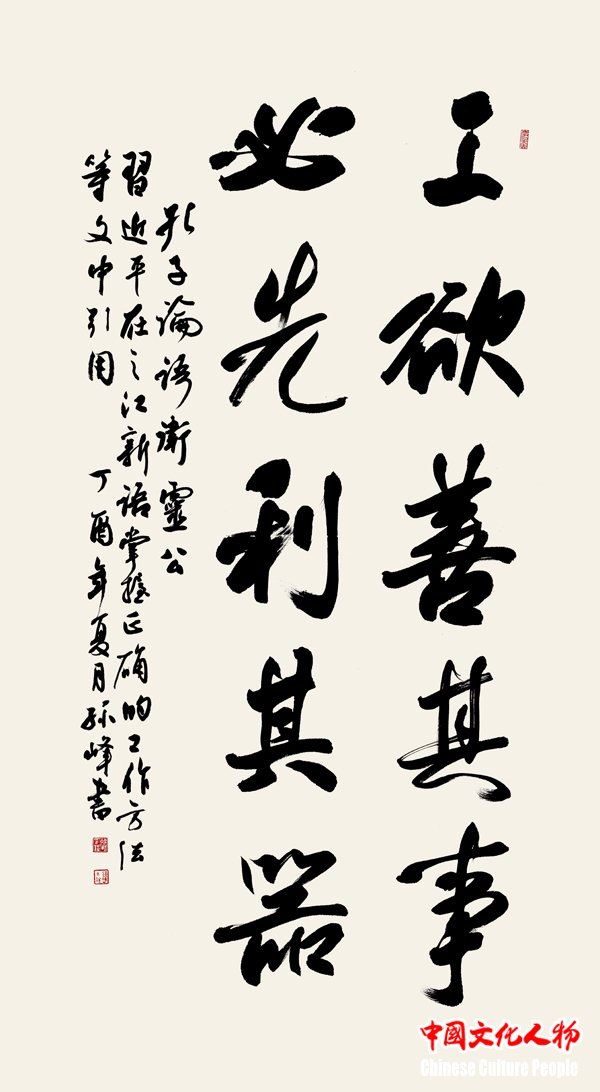 工欲善其事
必先利其器
孔子論語衛靈公
習近平在之江新语掌握正确的工作方法
等文中引用 丁酉年夏月孫峰書
中國文化人物
Chinese Culture People